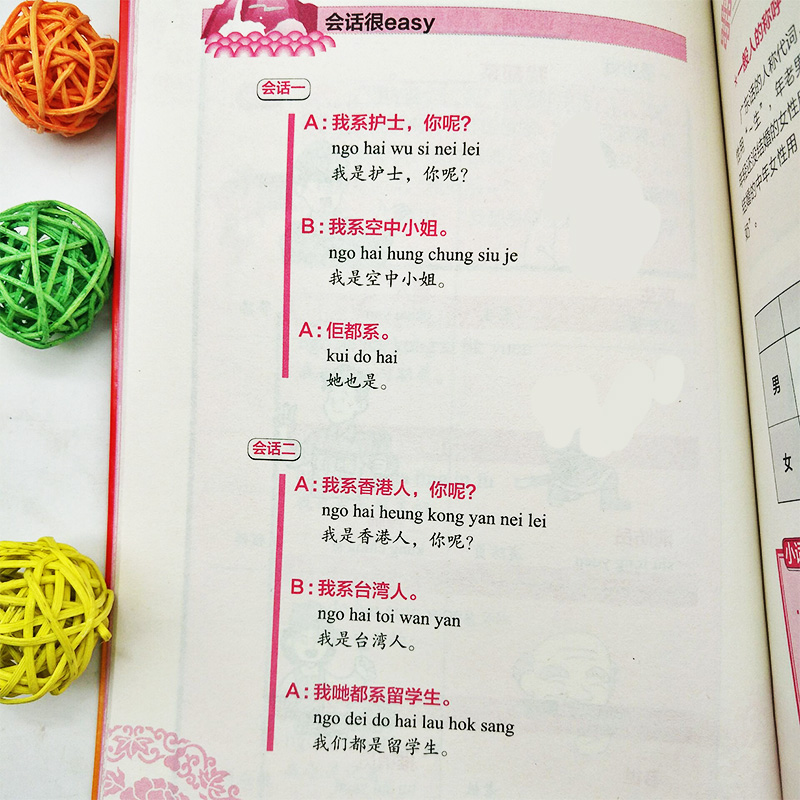 会话很easy
会话一
A:我系护士，你呢?
ngo hai wu si nei lei
我是护士，你呢?
B:我系空中小姐。
ngo hai hung chung siu je
我是空中小姐。
A:佢都系。
kui do hai
她也是。
会话二
A:我系香港人，你呢?
ngo hai heung kong yan nei lei
我是香港人，你呢?
B:我系台湾人。
ngo hai toi wan yan
我是台湾人。
A:我哋都系留学生。
ngo dei do hai lau hok sang
我们都是留学生。
一般人的称呼
广东话的人称代词
结婚的中年女性用
男
女